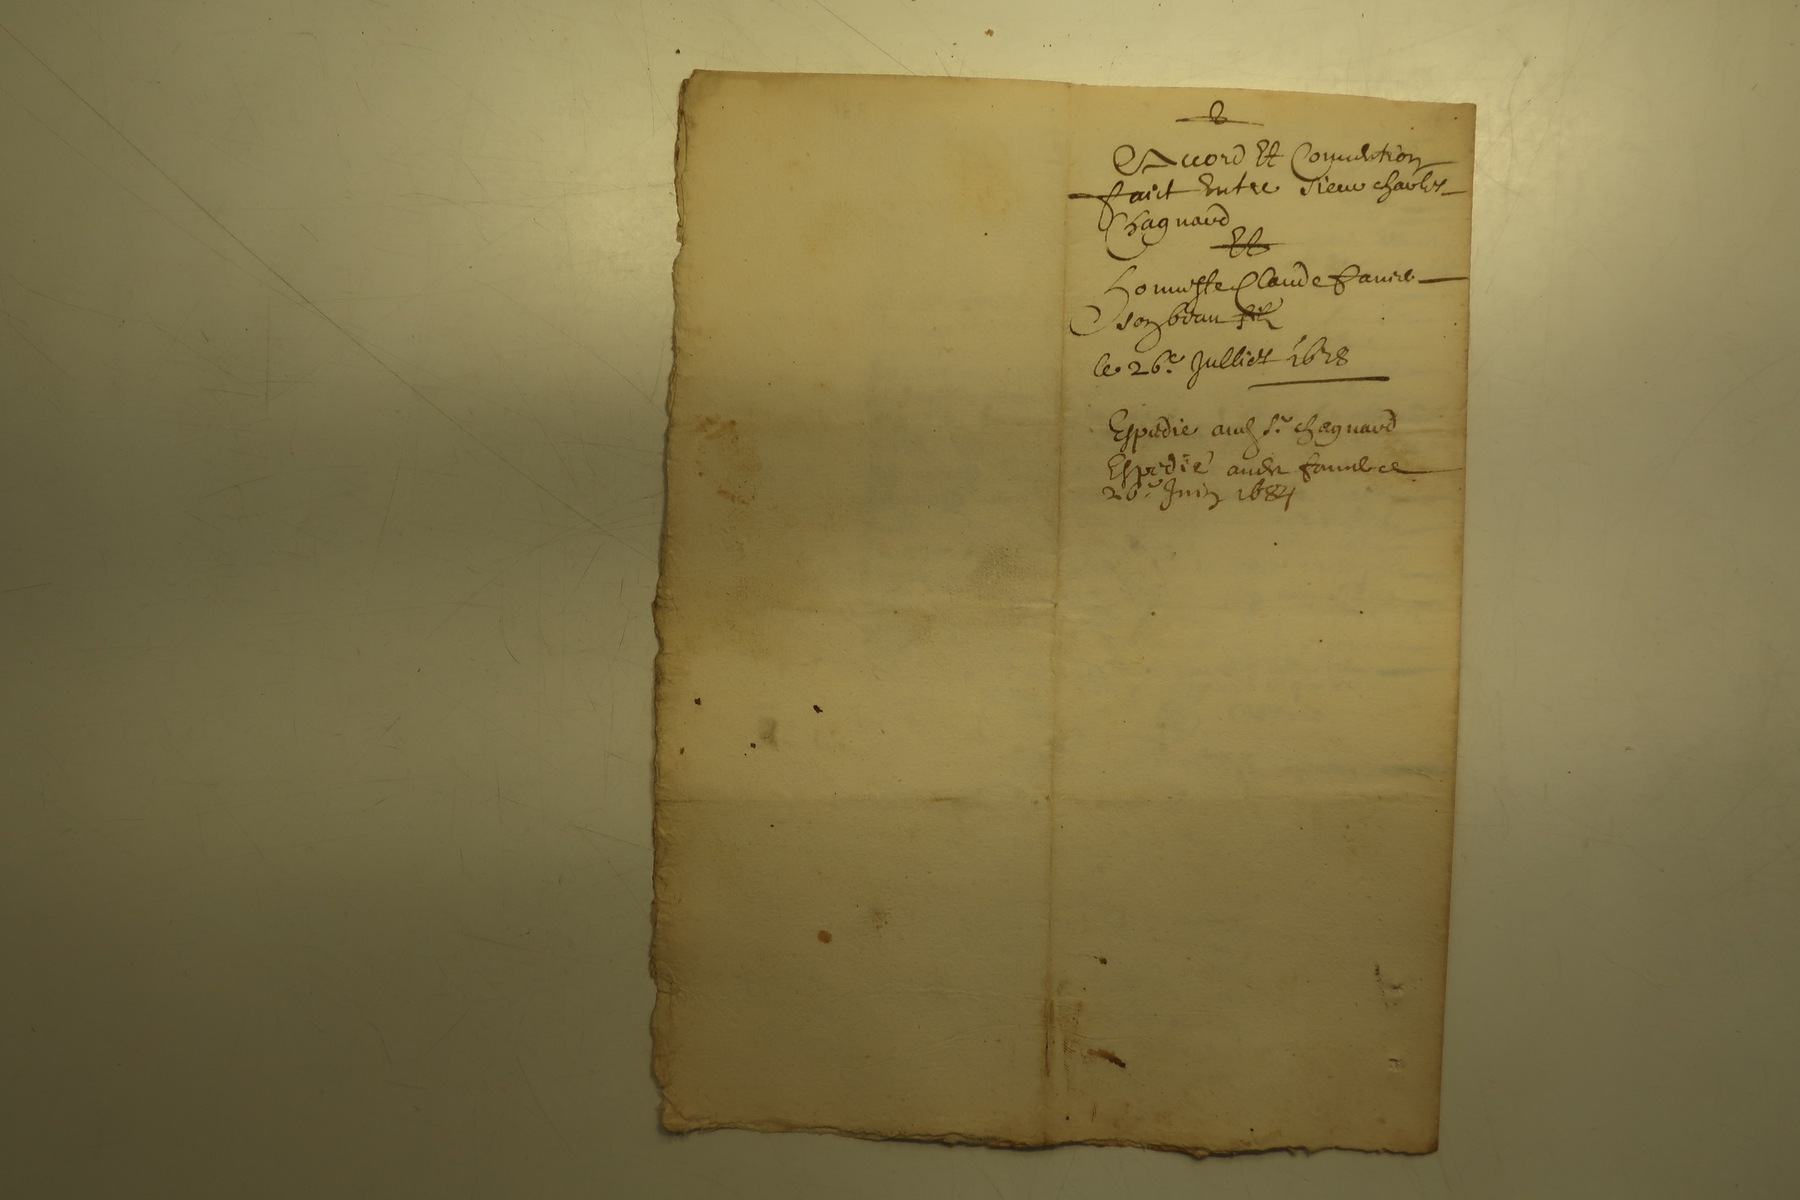 Accord Et Convention
faict Entre sieur charles
Chagnard
Et
honneste Claude favre
son beau filz
le 26e Julliet 1678
Expedie audt Sr chagnard
Expedié audt favre ce
26e Juin 1684